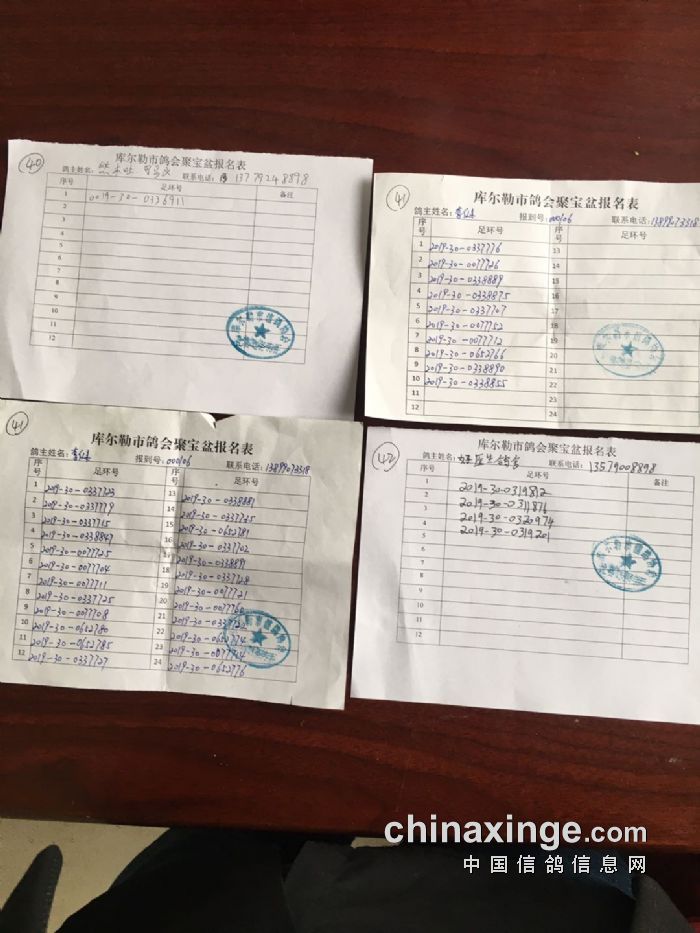 40
库尔勒市鸽会聚宝盆报名表
鸽主姓名: 联系电话: 13779248898
序号 足环号 备注
1 2019-30-0336911
2
3
4
5
6
7
8
9
10
11
12
41
库尔勒市鸽会聚宝盆报名表
鸽主姓名: 报到号: 000106 联系电话: 13899073318
序号 足环号 序号 足环号
1 2019-30-0337776 13
2 2019-30-0077726 14
3 2019-30-0338889 15
4 2019-30-0338875 16
5 2019-30-0337707 17
6 2019-30-0077752 18
7 2019-30-0077712 19
8 2019-30-0652766 20
9 2019-30-0338890 21
10 2019-30-0338855 22
11 23
12 24
41
库尔勒市鸽会聚宝盆报名表
鸽主姓名: 报到号: 000106 联系电话: 13899073318
序号 足环号 序号 足环号
1 2019-30-0337723 13 2019-30-0338881
2 2019-30-0337779 14 2019-30-0337735
3 2019-30-0337715 15 2019-30-0652781
4 2019-30-0338847 16 2019-30-0337702
5 2019-30-0077725 17 2019-30-0338891
6 2019-30-0077704 18 2019-30-0337728
7 2019-30-0077711 19 2019-30-0077721
8 2019-30-0337725 20 2019-30-0077760
9 2019-30-0077708 21
10 2019-30-0652780 22 2019-30-0652774
11 2019-30-0652785 23
12 2019-30-0337727 24 2019-30-0652776
42
库尔勒市鸽会聚宝盆报名表
鸽主姓名: 联系电话: 13579008898
序号 足环号 备注
1 2019-30-0319812
2 2019-30-0311871
3 2019-30-0320974
4 2019-30-0319201
5
6
7
8
9
10
11
12
chinaxinge.com
中国信鸽信息网